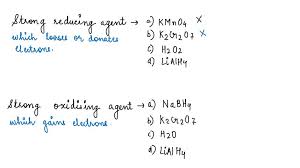 Strong reducing agent → a) KMnO4 x
which looses or donates b) K2Cr2O7 x
electrons. c) H2O2
d) LiAlH4
Strong oxidising agent → a) NaBH4
which gains electrons b) K2Cr2O7
c) H2O
d) LiAlH4